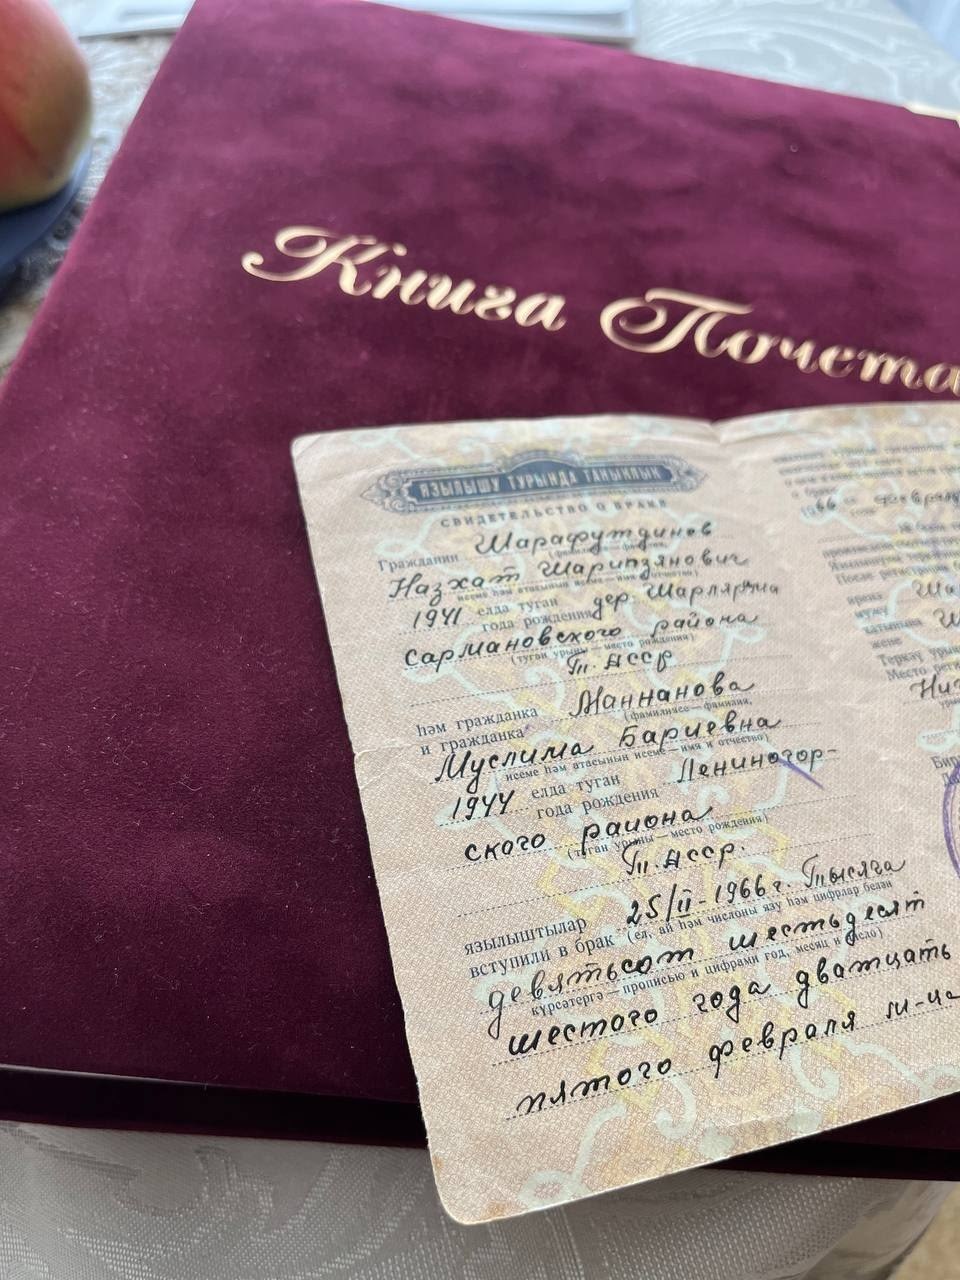 Книга Почета
ЯЗЫЛЫШУ ТУРЫНДА ТАНЫКЛЫК
СВИДЕТЕЛЬСТВО О БРАКЕ
Гражданин Шарафутдинов
(фамилиясе — фамилия,
Назхат Шарипзянович
исеме һәм атасының исеме — имя и отчество)
1941 елда туган дер. Шарлярәма
года рождения
Сармановского района
(туган урыны — место рождения)
Т. АССР
һәм гражданка Маннанова
и гражданка (фамилиясе — фамилия,
Муслима Бариевна
исеме һәм атасының исеме — имя и отчество)
1944 елда туган Лениногор-
года рождения
ского района
(туган урыны — место рождения)
Т. АССР.
язылыштылар 25/II-1966 г. Тысяча
вступили в брак (ел, ай һәм числоны язу һәм цифрлар белән
девятьсот шестьдесят
күрсәтергә — прописью и цифрами год, месяц и число)
шестого года дватцать
пятого февраля м-ца